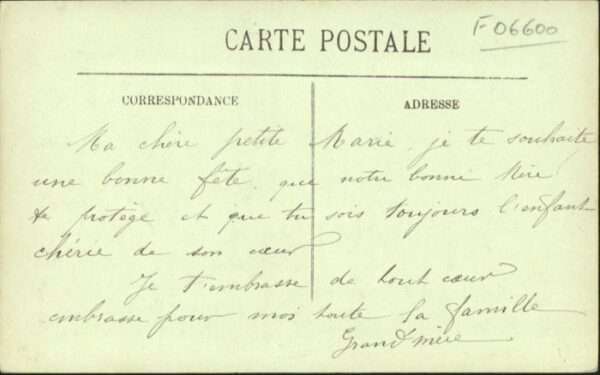 F 06600
CARTE POSTALE
CORRESPONDANCE
ADRESSE
Ma chère petite Marie, je te souhaite
une bonne fête, que notre bonne Mère
te protège et que tu sois toujours l'enfant
chérie de son cœur
Je t'embrasse de tout cœur
embrasse pour moi toute la famille
Grand'mère